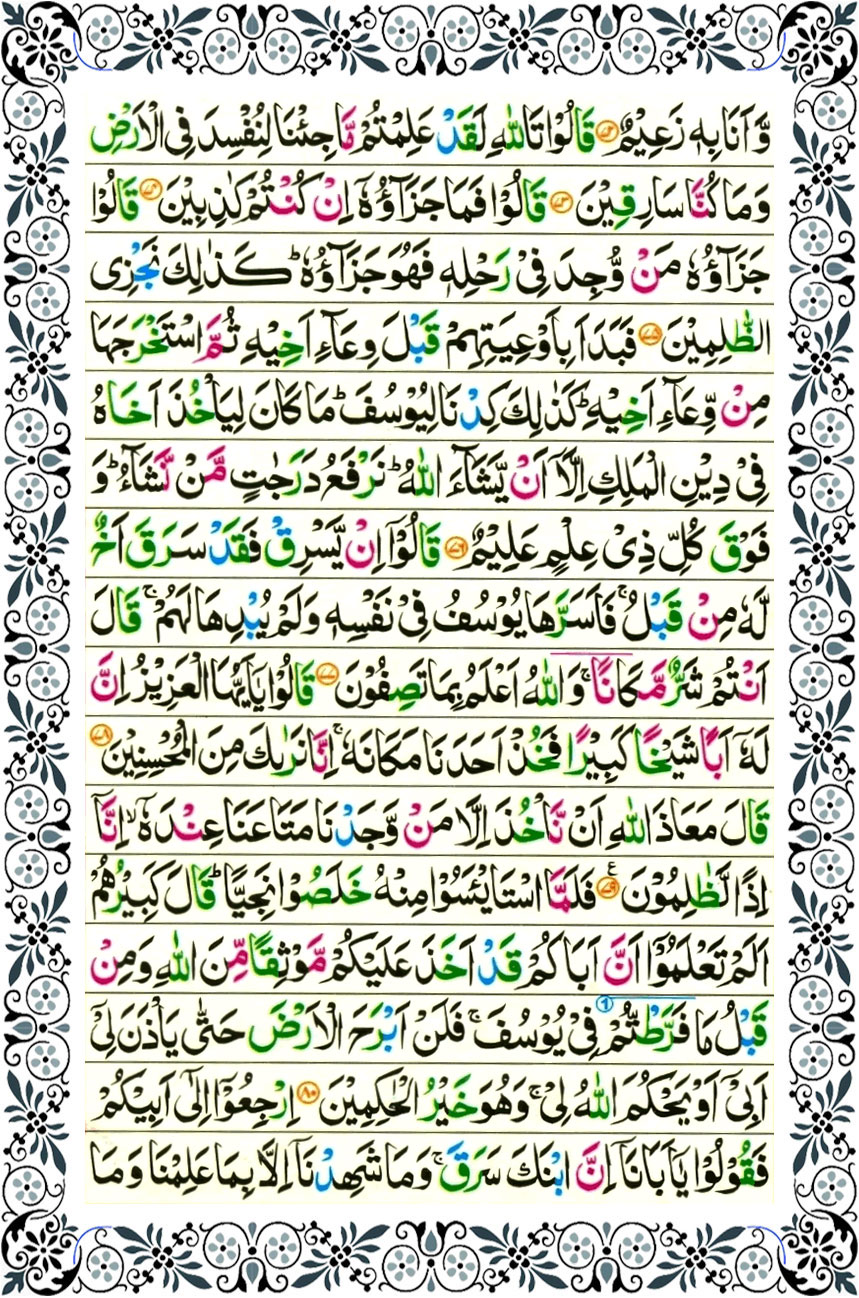 وَّ اَنَا بِهٖ زَعِيْمٌ ﴿۷۲﴾ قَالُوْا تَاللّٰهِ لَقَدْ عَلِمْتُمْ مَّا جِئْنَا لِنُفْسِدَ فِی الْاَرْضِ
وَمَا كُنَّا سَارِقِيْنَ ﴿۷۳﴾ قَالُوْا فَمَا جَزَآؤُهٗۤ اِنْ كُنْتُمْ كٰذِبِيْنَ ﴿۷۴﴾ قَالُوْا
جَزَآؤُهٗ مَنْ وُّجِدَ فِیْ رَحْلِهٖ فَهُوَ جَزَآؤُهٗ ؕ كَذٰلِكَ نَجْزِی
الظّٰلِمِيْنَ ﴿۷۵﴾ فَبَدَاَ بِاَوْعِيَتِهِمْ قَبْلَ وِعَآءِ اَخِيْهِ ثُمَّ اسْتَخْرَجَهَا
مِنْ وِّعَآءِ اَخِيْهِ ؕ كَذٰلِكَ كِدْنَا لِيُوْسُفَ ؕ مَا كَانَ لِيَاْخُذَ اَخَاهُ
فِیْ دِيْنِ الْمَلِكِ اِلَّاۤ اَنْ يَّشَآءَ اللّٰهُ ؕ نَرْفَعُ دَرَجٰتٍ مَّنْ نَّشَآءُ ؕ وَ
فَوْقَ كُلِّ ذِیْ عِلْمٍ عَلِيْمٌ ﴿۷۶﴾ قَالُوْۤا اِنْ يَّسْرِقْ فَقَدْ سَرَقَ اَخٌ
لَّهٗ مِنْ قَبْلُ ۚ فَاَسَرَّهَا يُوْسُفُ فِیْ نَفْسِهٖ وَلَمْ يُبْدِهَا لَهُمْ ۚ قَالَ
اَنْتُمْ شَرٌّ مَّكَانًا ۚ وَاللّٰهُ اَعْلَمُ بِمَا تَصِفُوْنَ ﴿۷۷﴾ قَالُوْا يٰۤاَيُّهَا الْعَزِيْزُ اِنَّ
لَهٗۤ اَبًا شَيْخًا كَبِيْرًا فَخُذْ اَحَدَنَا مَكَانَهٗ ۚ اِنَّا نَرٰىكَ مِنَ الْمُحْسِنِيْنَ ﴿۷۸﴾
قَالَ مَعَاذَ اللّٰهِ اَنْ نَّاْخُذَ اِلَّا مَنْ وَّجَدْنَا مَتَاعَنَا عِنْدَهٗۤ ۙ اِنَّاۤ
اِذًا لَّظٰلِمُوْنَ ﴿۷۹﴾ ع فَلَمَّا اسْتَايْـَٔسُوْا مِنْهُ خَلَصُوْا نَجِيًّا ؕ قَالَ كَبِيْرُهُمْ
اَلَمْ تَعْلَمُوْۤا اَنَّ اَبَاكُمْ قَدْ اَخَذَ عَلَيْكُمْ مَّوْثِقًا مِّنَ اللّٰهِ وَمِنْ
قَبْلُ مَا فَرَّطْتُّمْ فِیْ يُوْسُفَ ۚ فَلَنْ اَبْرَحَ الْاَرْضَ حَتّٰی يَاْذَنَ لِیْۤ
اَبِیْۤ اَوْ يَحْكُمَ اللّٰهُ لِیْ ۚ وَهُوَ خَيْرُ الْحٰكِمِيْنَ ﴿۸۰﴾ اِرْجِعُوْۤا اِلٰۤی اَبِيْكُمْ
فَقُوْلُوْا يٰۤاَبَانَاۤ اِنَّ ابْنَكَ سَرَقَ ۚ وَمَا شَهِدْنَاۤ اِلَّا بِمَا عَلِمْنَا وَمَا